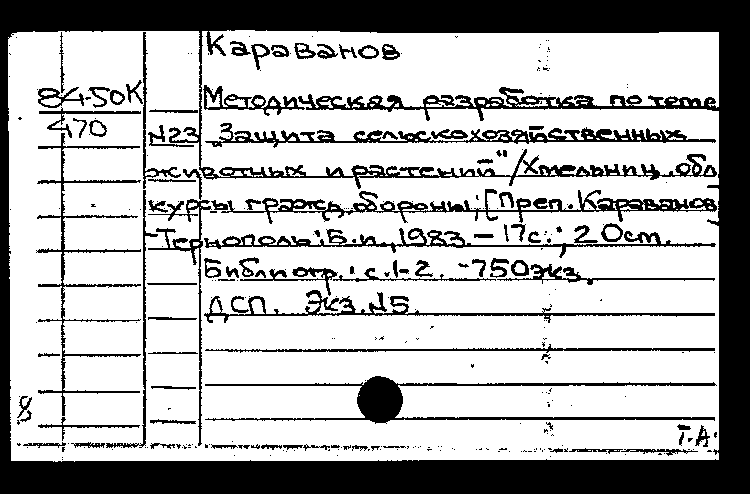 Караванов
84-50К Методическая разработка по теме
470 N23 „Защита сельскохозяйственных
животных и растений"/Хмельниц. обл.
курсы гражд. обороны; [Преп. Караванов]
-Тернополь: Б.и., 1983. - 17с.; 20см.
Библиогр.: с. 1-2. -750экз.
ДСП. Экз. N5.
8
Т.А.